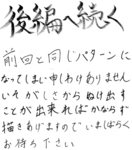 後編へ続く
前回と同じパターンに
なってしまい申しわけありません
いそがしさからぬけ出す
ことが出来ればかならず
描きあげますのでいましばらく
お待ち下さい